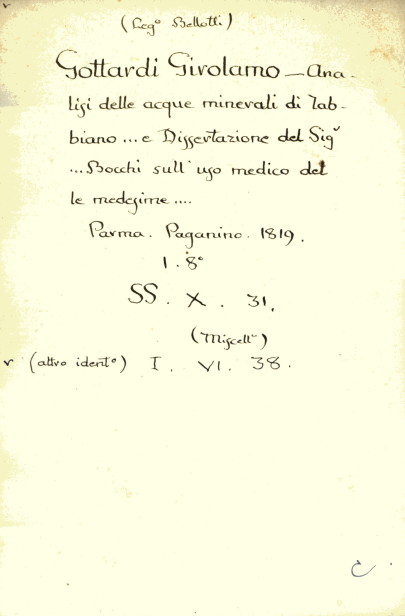 (Legº Bellotti)
Gottardi Girolamo — Ana-
lisi delle acque minerali di Tab-
biano ... e Dissertazione del Sigʳ
... Bocchi sull'uso medico del
le medesime ....
Parma. Paganino. 1819.
1. 8º
SS. X. 31.
(Miscellª)
v (altro identº) I. VI. 38.
C